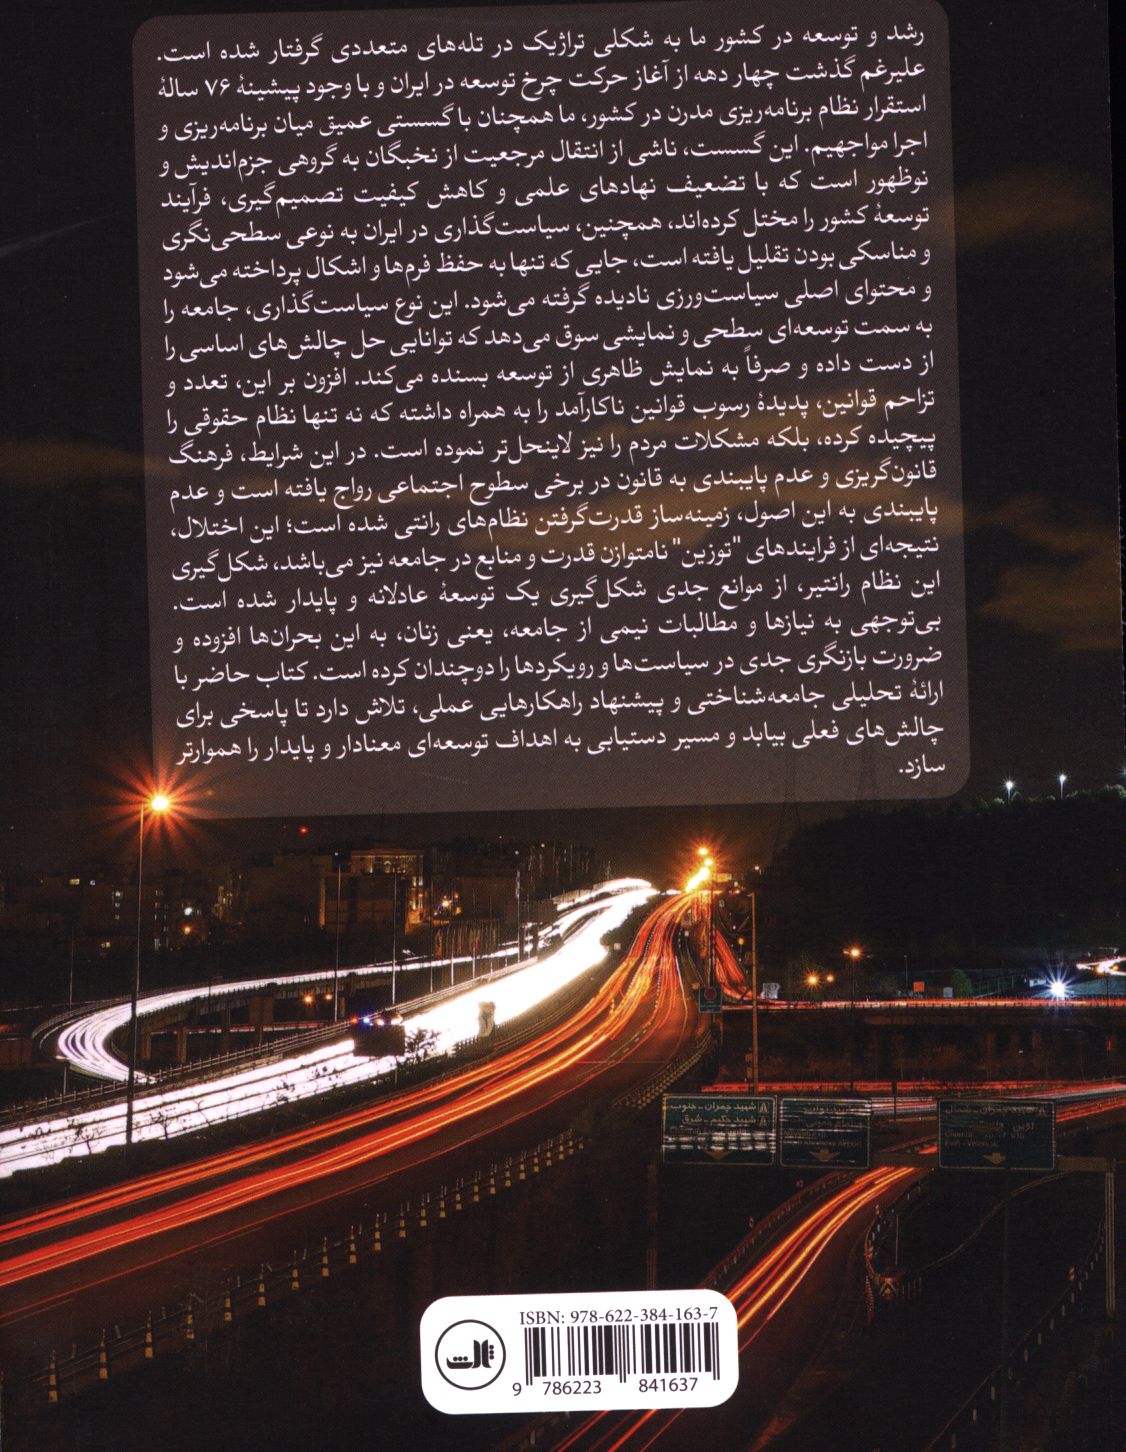 رشد و توسعه در کشور ما به شکلی تراژیک در تله‌های متعددی گرفتار شده است.
علیرغم گذشت چهار دهه از آغاز حرکت چرخ توسعه در ایران و با وجود پیشینهٔ ۷۶ سالهٔ
استقرار نظام برنامه‌ریزی مدرن در کشور، ما همچنان با گسستی عمیق میان برنامه‌ریزی و
اجرا مواجهیم. این گسست، ناشی از انتقال مرجعیت از نخبگان به گروهی جزم‌اندیش و
نوظهور است که با تضعیف نهادهای علمی و کاهش کیفیت تصمیم‌گیری، فرآیند
توسعهٔ کشور را مختل کرده‌اند، همچنین، سیاست‌گذاری در ایران به نوعی سطحی‌نگری
و مناسکی بودن تقلیل یافته است، جایی که تنها به حفظ فرم‌ها و اشکال پرداخته می‌شود
و محتوای اصلی سیاست‌ورزی نادیده گرفته می‌شود. این نوع سیاست‌گذاری، جامعه را
به سمت توسعه‌ای سطحی و نمایشی سوق می‌دهد که توانایی حل چالش‌های اساسی را
از دست داده و صرفاً به نمایش ظاهری از توسعه بسنده می‌کند. افزون بر این، تعدد و
تزاحم قوانین، پدیدهٔ رسوب قوانین ناکارآمد را به همراه داشته که نه تنها نظام حقوقی را
پیچیده کرده، بلکه مشکلات مردم را نیز لاینحل‌تر نموده است. در این شرایط، فرهنگ
قانون‌گریزی و عدم پایبندی به قانون در برخی سطوح اجتماعی رواج یافته است و عدم
پایبندی به این اصول، زمینه‌ساز قدرت‌گرفتن نظام‌های رانتی شده است؛ این اختلال،
نتیجه‌ای از فرایندهای "توزین" نامتوازن قدرت و منابع در جامعه نیز می‌باشد، شکل‌گیری
این نظام رانتیر، از موانع جدی شکل‌گیری یک توسعهٔ عادلانه و پایدار شده است.
بی‌توجهی به نیازها و مطالبات نیمی از جامعه، یعنی زنان، به این بحران‌ها افزوده و
ضرورت بازنگری جدی در سیاست‌ها و رویکردها را دوچندان کرده است. کتاب حاضر با
ارائهٔ تحلیلی جامعه‌شناختی و پیشنهاد راهکارهایی عملی، تلاش دارد تا پاسخی برای
چالش‌های فعلی بیابد و مسیر دستیابی به اهداف توسعه‌ای معنادار و پایدار را هموارتر
سازد.
شهید چمران - جنوب
شهید حکیم - شرق
ISBN: 978-622-384-163-7
ثالث
9 786223 841637